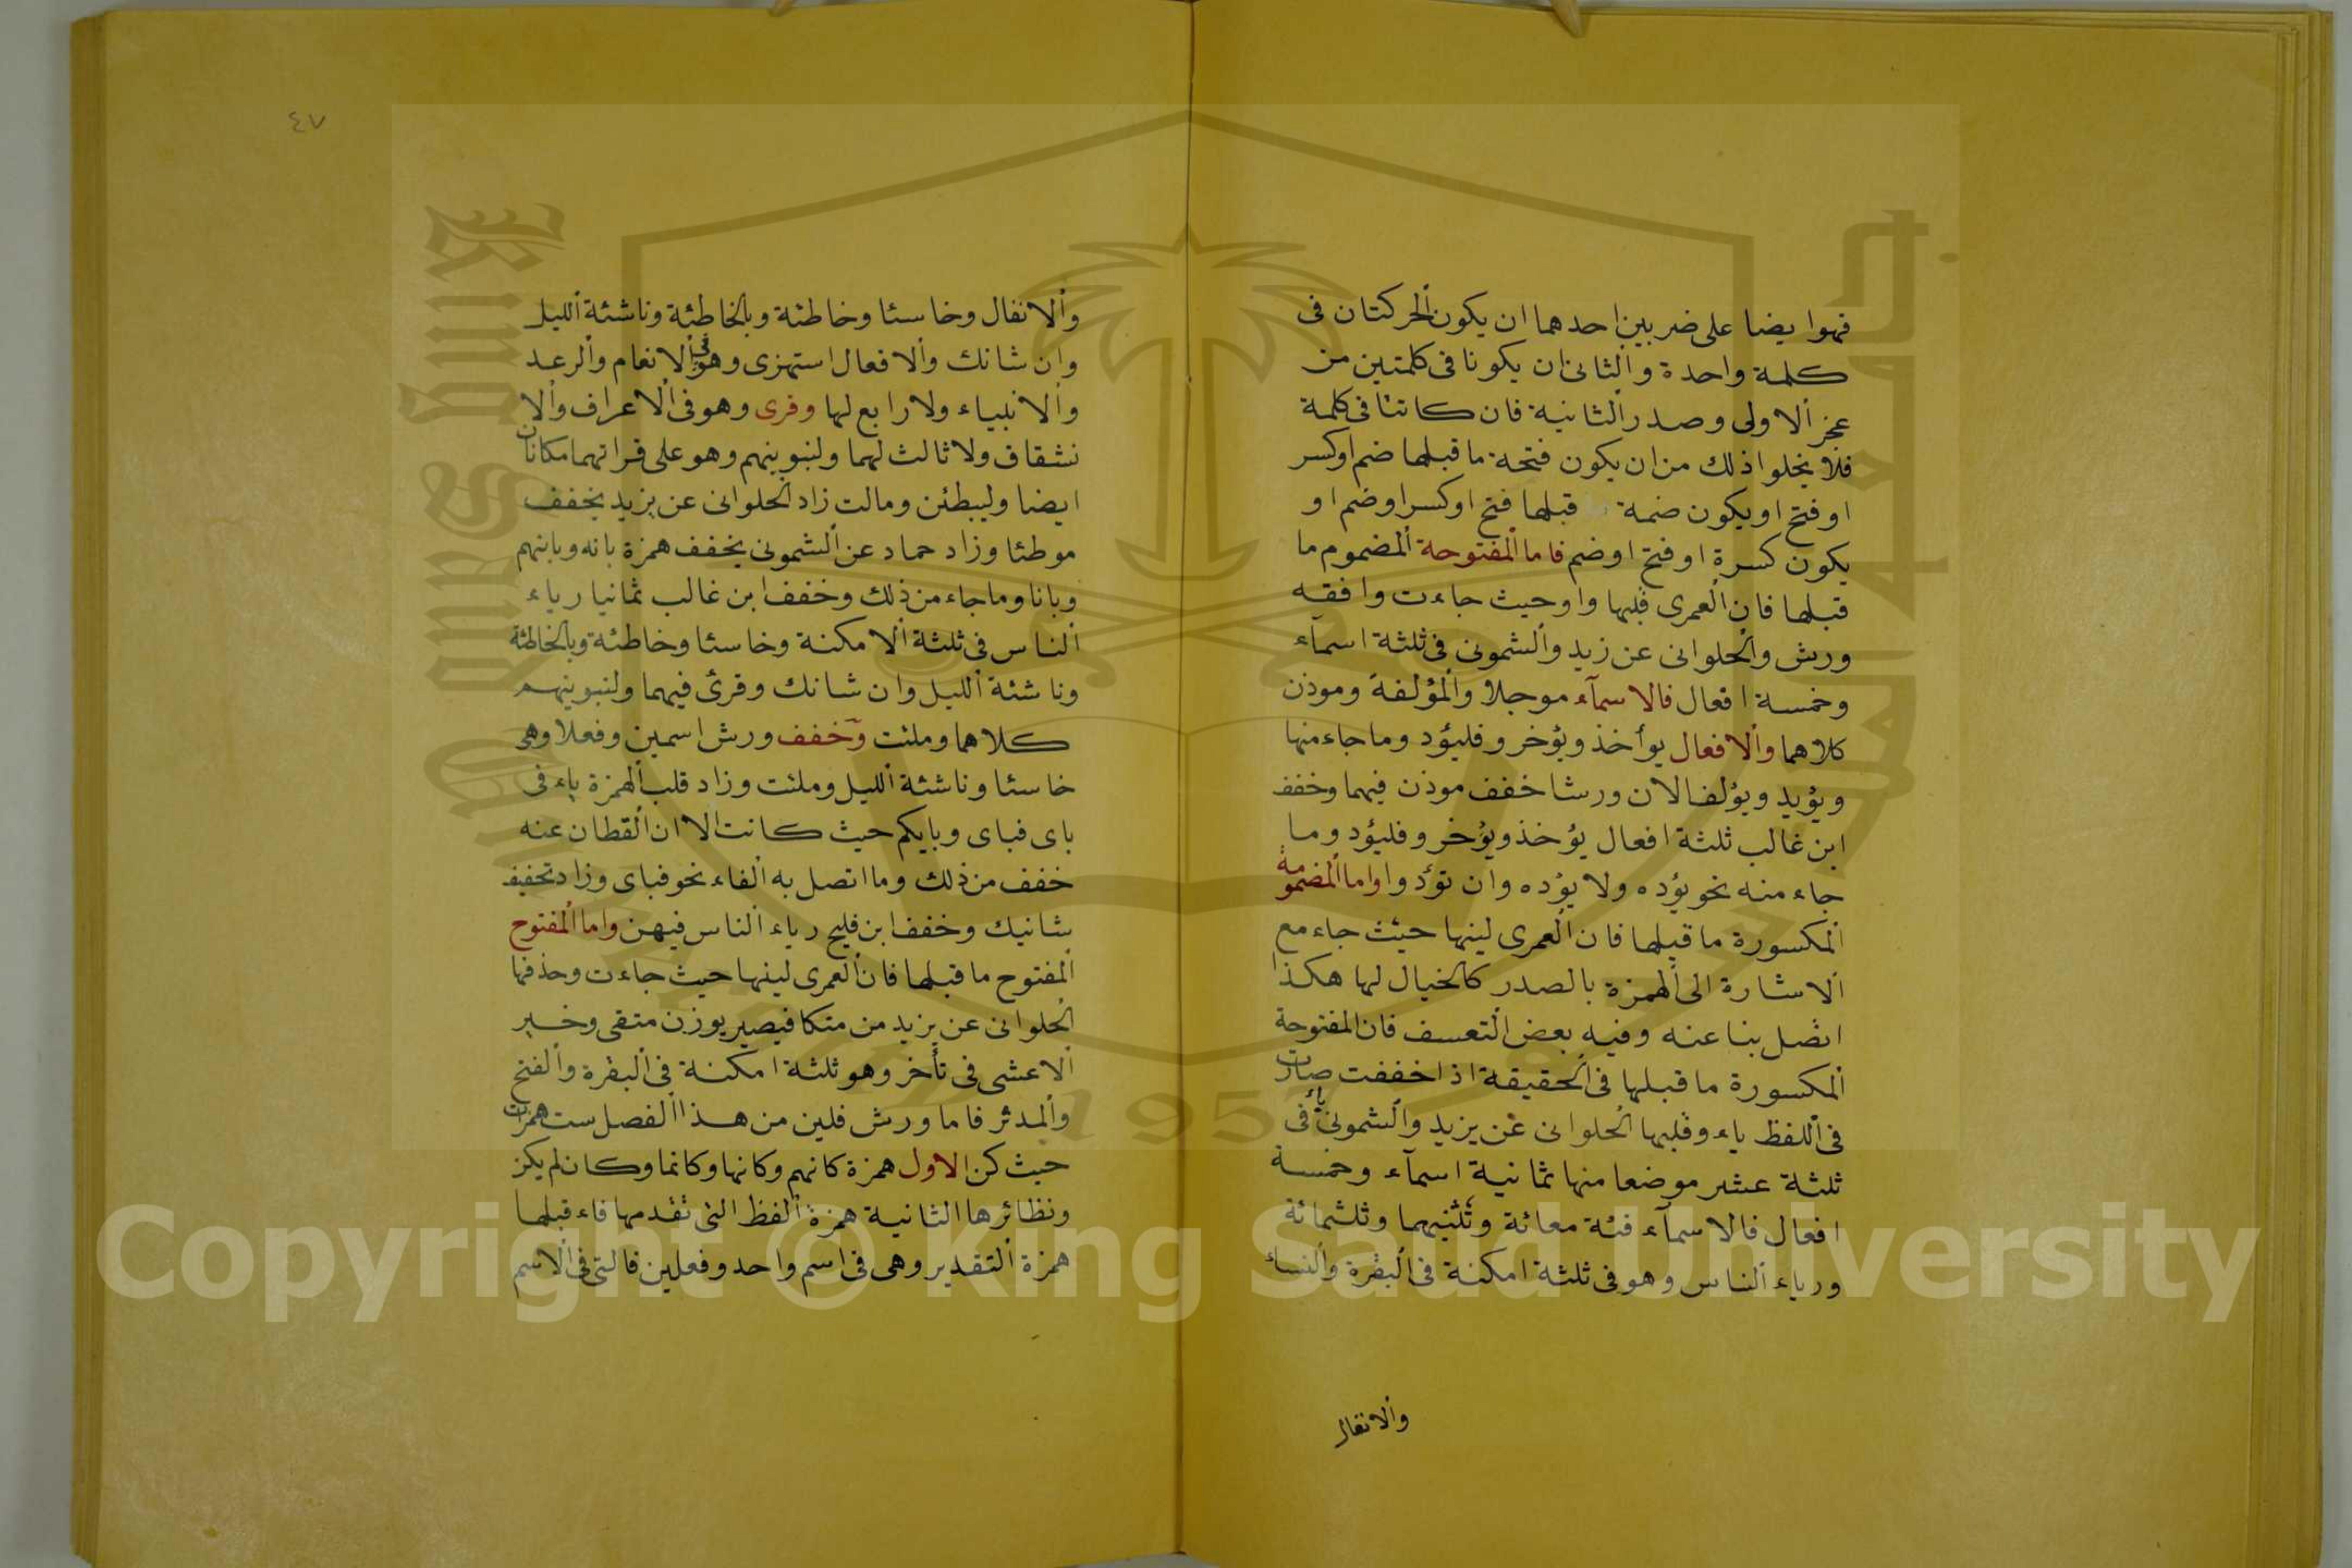 فهوا يضا على ضربين احدهما ان يكون الحركتان فى
كلمة واحدة والثانى ان يكونا فى كلمتين من
عجز الاولى وصدر الثانية فان كانتا فى كلمة
فلا يخلوا ذلك من ان يكون فتحة ما قبلها ضم او كسر
او فتح او يكون ضمة قبلها فتح او كسر او ضم او
يكون كسرة او فتح او ضم فاما المفتوحة المضموم ما
قبلها فان العمرى قلبها واو حيث جاءت وافقه
ورش والحلوانى عن زيد والشمونى فى ثلثة اسمآء
وخمسة افعال فالاسمآء موجلا والمؤلفة وموذن
كلاهما والافعال يوأخذ ويؤخر وفليؤد وما جاء منها
ويؤيد ويؤلف الا ان ورشا خفف موذن فيهما وخفف
ابن غالب ثلثة افعال يؤخذ ويؤخر وفليؤد وما
جاء منه نحو يؤده ولا يؤده وان تؤدوا واما المضمومة
المكسورة ما قبلها فان العمرى لينها حيث جاء مع
الاشارة الى الهمزة بالصدر كالخيال لها هكذا
اتصل بنا عنه وفيه بعض التعسف فان المفتوحة
المكسورة ما قبلها فى الحقيقة اذا خففت صارت
فى اللفظ ياء وقلبها الحلوانى عن يزيد والشمونى ياء فى
ثلثة عشر موضعا منها ثمانية اسمآء وخمسة
افعال فالاسمآء فئة معائة وتثنيهما وثلثمائة
ورياء الناس وهو فى ثلثة امكنة فى البقرة والنساء
والانفال
٤٧
والانفال وخاسئا وخاطئة وبالخاطئة وناشئة الليل
وان شانك والافعال استهزى وهو فى الانعام والرعد
والانبياء ولا رابع لها وقرى وهو فى الاعراف والا
نشقاق ولا ثالث لهما ولنبوينهم وهو على قراتهما مكانان
ايضا وليبطئن ومالت زاد الحلوانى عن يزيد يخفف
موطئا وزاد حماد عن الشمونى يخفف همزة بانه وبانهم
وبانا وما جاء من ذلك وخفف ابن غالب ثمانيا رياء
الناس فى ثلثة الامكنة وخاسئا وخاطئة وبالخاطئة
وناشئة الليل وان شانك وقرئ فيهما ولنبوينهم
كلاهما وملئت وخفف ورش اسمين وفعلا وهى
خاسئا وناشئة الليل وملئت وزاد قلب الهمزة ياء فى
باى فباى وبايكم حيث كانت الا ان القطان عنه
خفف من ذلك وما اتصل به الفاء نحو فباى وزاد تخفيف
شانيك وخفف ابن فليح رياء الناس فيهن واما المفتوح
المفتوح ما قبلها فان العمرى لينها حيث جاءت وحذفها
الحلوانى عن يزيد من متكا فيصير بوزن متقى وخير
الاعشى فى تأخر وهو ثلثة امكنة فى البقرة والفتح
والمدثر فاما ورش فلين من هذا الفصل ست همزات
حيث كن الاول همزة كانهم وكانها وكانما وكان لم يكن
ونظائرها الثانية همزة الفظ التى تقدمها فاء قبلها
همزة التقدير وهى فى اسم واحد وفعلين فالتى فى الاسم
Copyright © King Saud University
1957